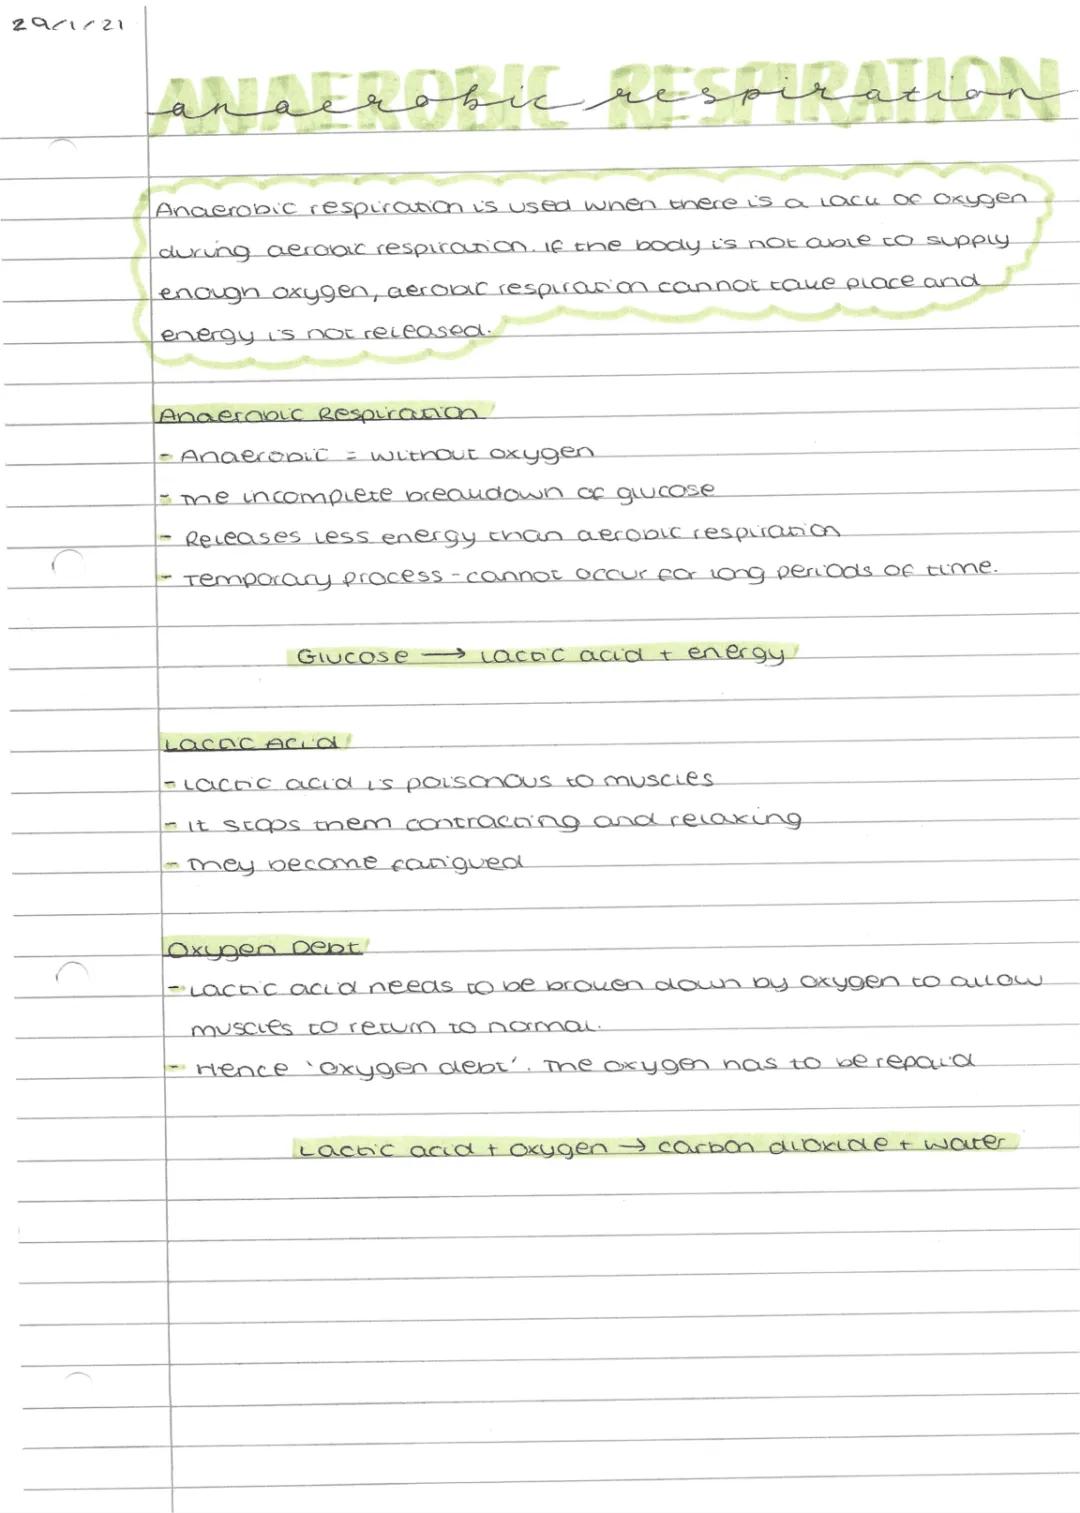 29/1/21
ANAEROBIC RESPIRATION
anaerobic respiration
Anaerobic respiration is used when there is a lack of oxygen
during aerobic respiration. If the body is not able to supply
enough oxygen, aerobic respiration cannot take place and
energy is not released.
Anaerobic Respiration
- Anaerobic = without oxygen
- The incomplete breakdown of glucose
- Releases less energy than aerobic respiration
- Temporary process - cannot occur for long periods of time.
Glucose → Lactic acid + energy
Lactic Acid
- Lactic acid is poisonous to muscles
- It stops them contracting and relaxing
- They become fatigued
Oxygen Debt
- Lactic acid needs to be broken down by oxygen to allow
muscles to return to normal.
- Hence 'oxygen debt'. The oxygen has to be repaid
Lactic acid + oxygen → carbon dioxide + water